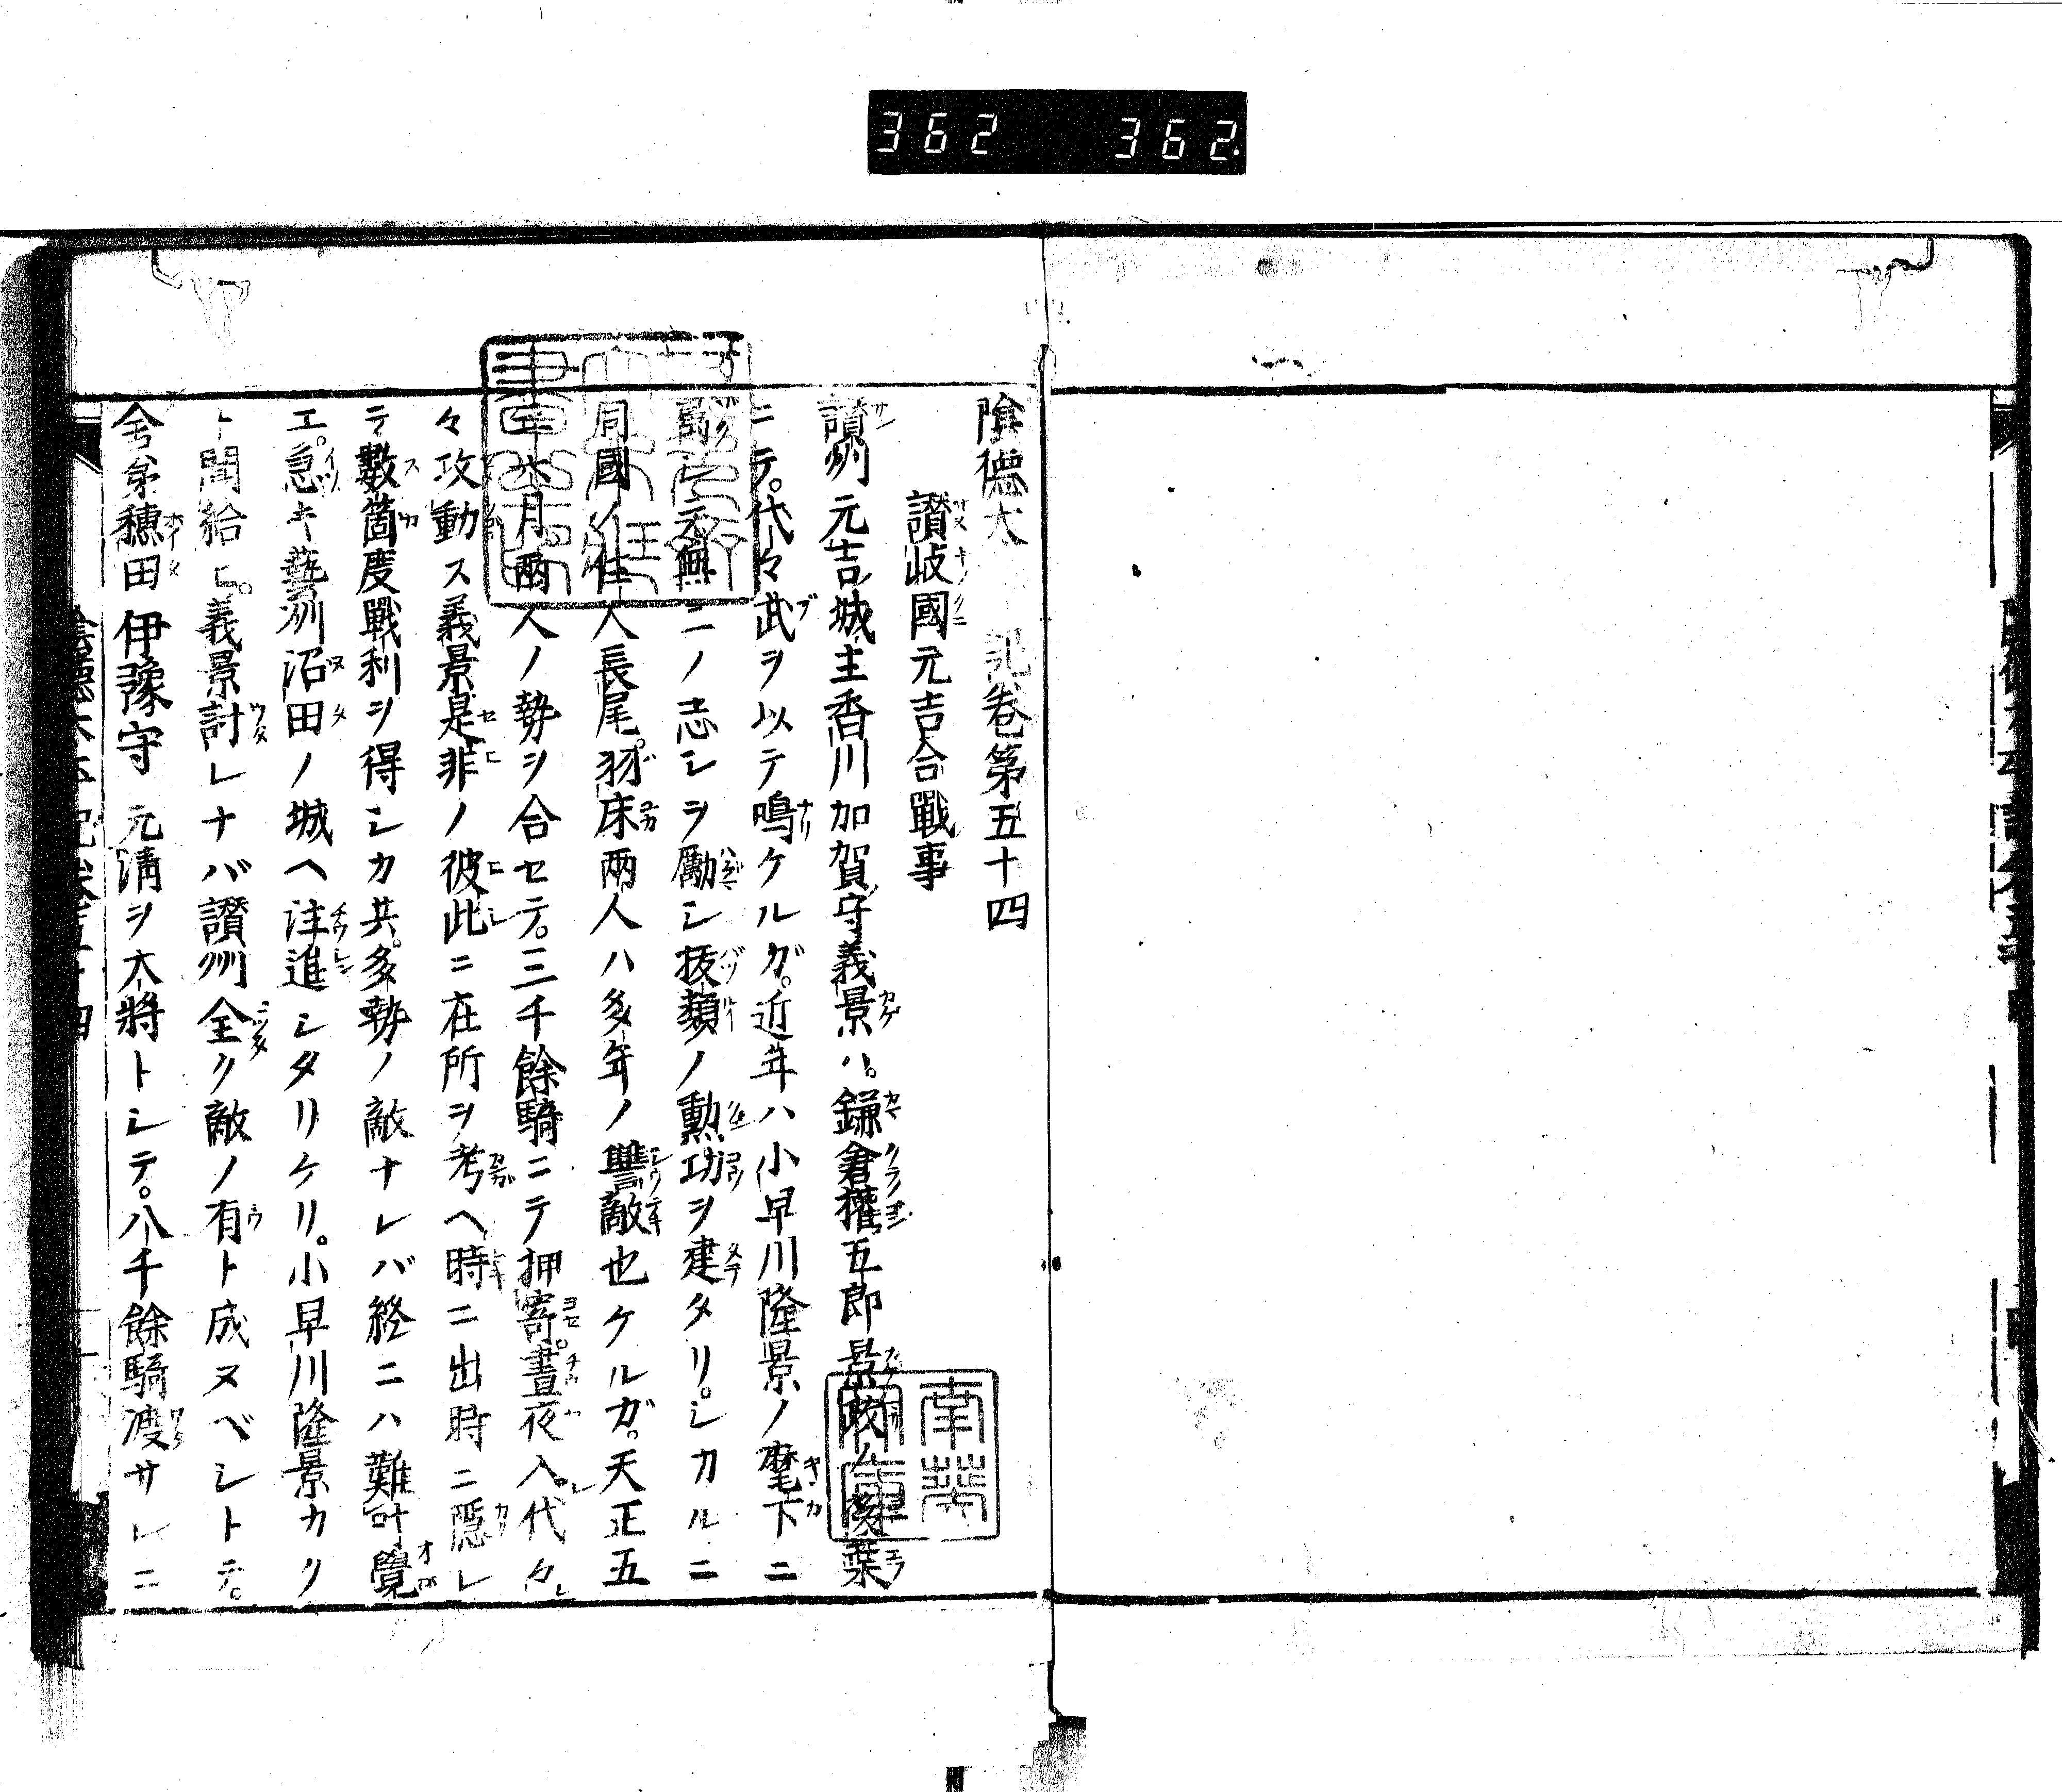 362 362
陰德太 記卷第五十四
讃岐國元吉合戰事
讃州元吉ノ城主香川加賀守義景ハ。鎌倉權五郎景政ノ後葉
ニテ。代々武ヲ以テ鳴ケルガ。近年ハ小早川隆景ノ麾下ニ
屬シ。元無二ノ志シヲ勵シ拔類ノ勲功ヲ建タリ。シカルニ
同國ノ住人長尾。羽床兩人ハ多年ノ讐敵也ケルガ。天正五
年六月兩人ノ勢ヲ合セテ。三千餘騎ニテ押寄。晝夜入代々
々攻動ス義景是非ノ彼此ニ在所ヲ考ヘ時ニ出時ニ隱レ
テ數箇度戰利ヲ得シカ共。多勢ノ敵ナレバ終ニハ難叶覺
エ。急キ藝州沼田ノ城ヘ注進シタリケリ。小早川隆景カク
ト聞給ヒ。義景討レナバ讃州全ク敵ノ有ト成ヌベシトテ。
舎弟穗田伊豫守元清ヲ大將トシテ。八千餘騎渡サレニ